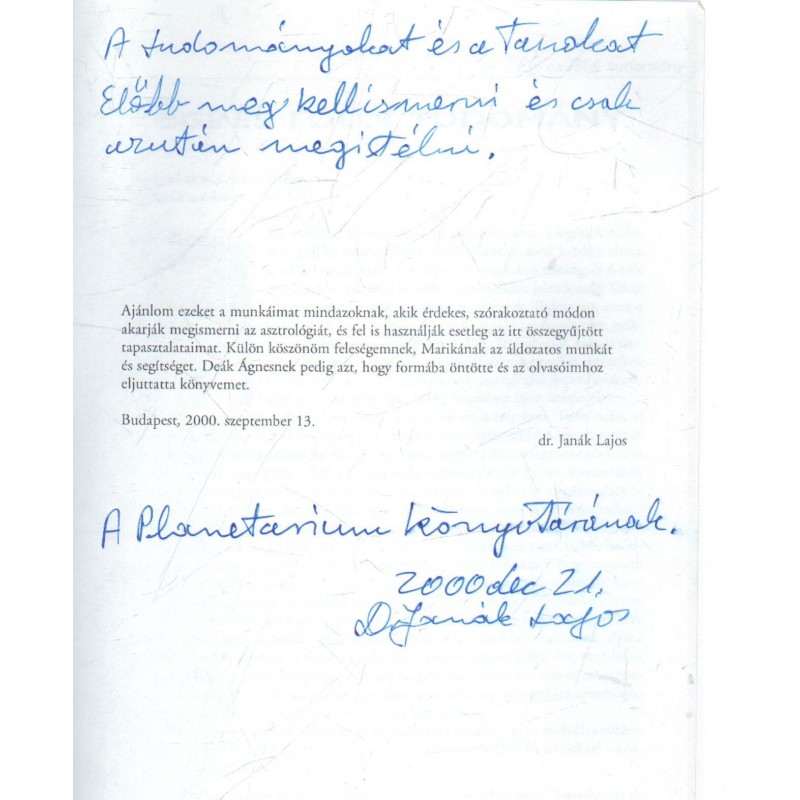 A tudományokat és a Tanokat
Előbb meg kell ismerni és csak
azután megitélni.
Ajánlom ezeket a munkáimat mindazoknak, akik érdekes, szórakoztató módon
akarják megismerni az asztrológiát, és fel is használják esetleg az itt összegyűjtött
tapasztalataimat. Külön köszönöm feleségemnek, Marikának az áldozatos munkát
és segítséget. Deák Ágnesnek pedig azt, hogy formába öntötte és az olvasóimhoz
eljuttatta könyvemet.
Budapest, 2000. szeptember 13.
dr. Janák Lajos
A Planetarium könyvtárának.
2000 dec 21.
Dr Janák Lajos